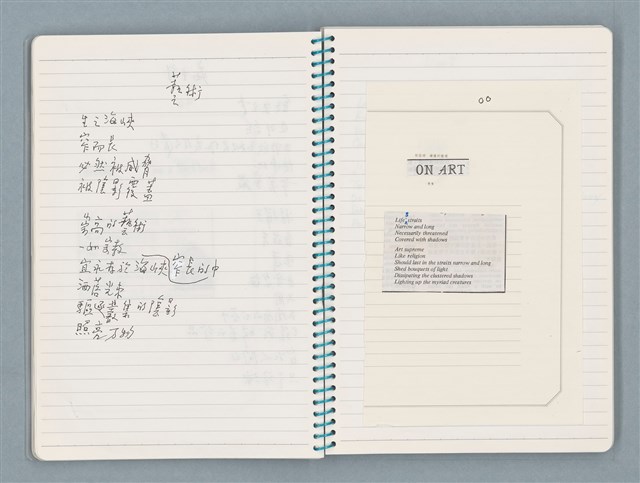 藝術
之
生之海峽
窄而長
必然被威脅
被陰影覆蓋
崇高的藝術
一如宗教
宜永存於海峽窄長的中
洒落光束
驅逐叢集的陰影
照亮万物
ON ART
Life straits
Narrow and long
Necessarily threatened
Covered with shadows
Art supreme
Like religion
Should last in the straits narrow and long
Shed bouquets of light
Dissipating the clustered shadows
Lighting up the myriad creatures